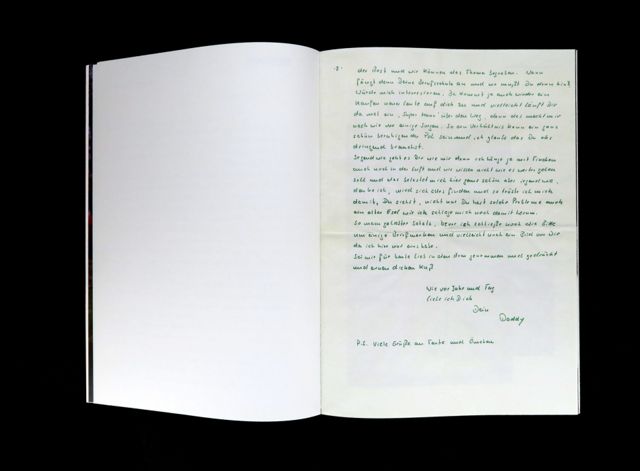 -2-
der Post und wir können das Thema begraben. Wann
fängt denn Deine Berufsschule an und wo mußt Du denn hin?
Würde mich interessieren. Da kommt ja auch wieder ein
Haufen neuer Leute auf dich zu und vielleicht läuft Dir
da mal ein "Super Mann" über den Weg, denn das macht mir
noch wie vor einige Sorgen. So ein Verhältnis kann ein ganz
schön beruhigender Pol sein und ich glaube das Du das
dringend brauchst.
Irgendwie geht es Dir wie mir denn ich hänge ja mit
auch noch in der Luft und wir wissen nicht wie es weiter gehen
soll und das belastet mich hier ganz schön aber irgendwie,
denke ich, wird sich alles finden und so tröste ich mich
damit, Du siehst, nicht nur Du hast solche Probleme auch
ein alter Esel wie ich schlage mich noch damit herum.
So mein geliebter Schatz, bevor ich schließe noch die Bitte
um einige Briefmarken und vielleicht noch ein Bild von Dir
da ich hier nur eins habe.
Sei mir für heute lieb in den Arm genommen und gedrückt
und einen dicken Kuß
Wie vor Jahr und Tag
liebe ich Dich
Dein
Daddy
P.S. Viele Grüße an Tante und